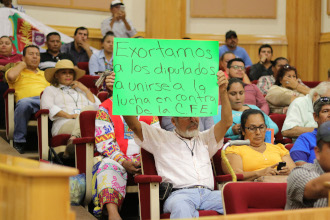 Exortamos
a los diputados
a unirse a la
lucha en contra
de la C.F.E.